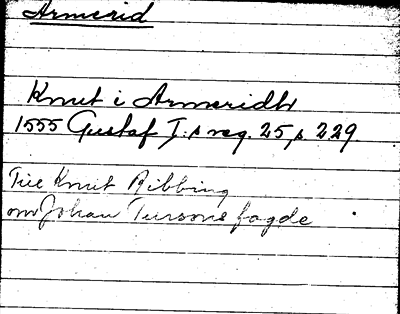 Armerid
Knut i Armeridh
1555 Gustaf I:s reg. 25, s 229.
Till Knut Ribbing
om Johan Turssons fogde